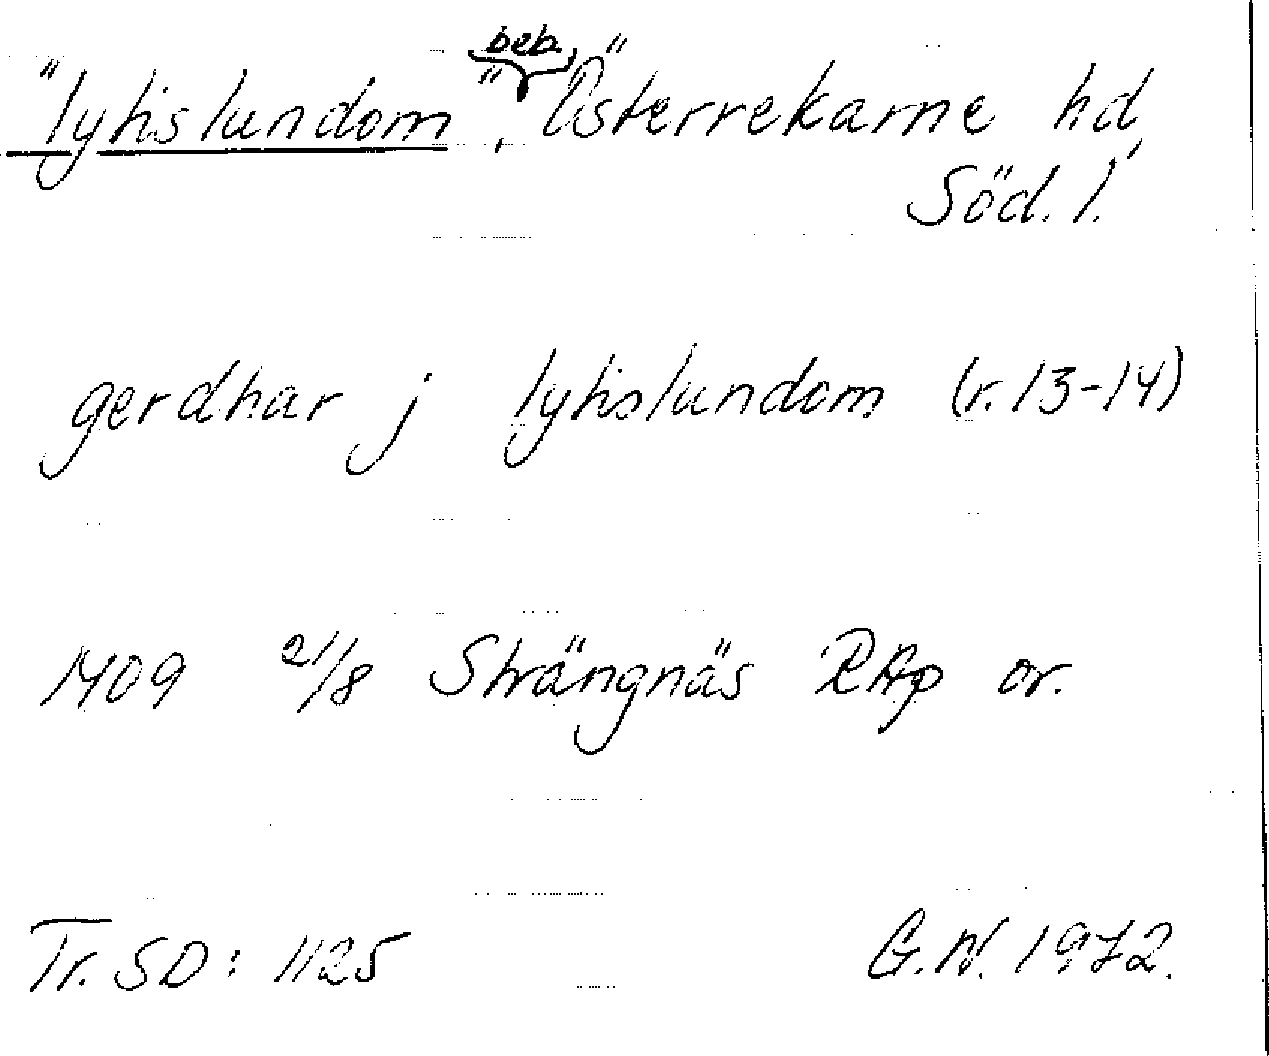 beb.
"lytislundom", Österrekarne hd,
Söd. l.
gerdhar j lytislundom (r. 13-14)
1409 21/8 Strängnäs RAp or.
Tr. SD: 1125 G.W. 1972.